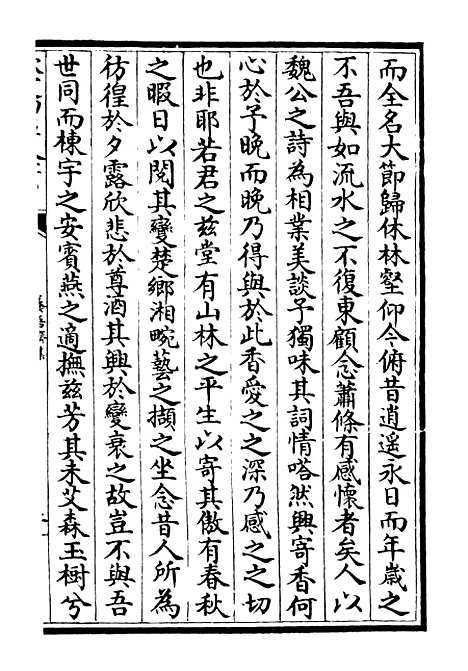 而全名大節歸休林壑仰今俯昔逍遥永日而年嵗之
不吾與如流水之不復東顧念蕭條有感懷者矣人以
魏公之詩為相業美談予獨味其詞情嗒然興寄香何
心於予晚而晚乃得與於此香愛之之深乃感之之切
也非耶若君之兹堂有山林之平生以寄其傲有春秋
之暇日以閱其變楚鄉湘畹藝之擷之坐念昔人所為
彷徨於夕露欣悲於尊酒其興於變衰之故豈不與吾
世同而棟宇之安賓燕之適撫兹芳其未艾森玉樹兮